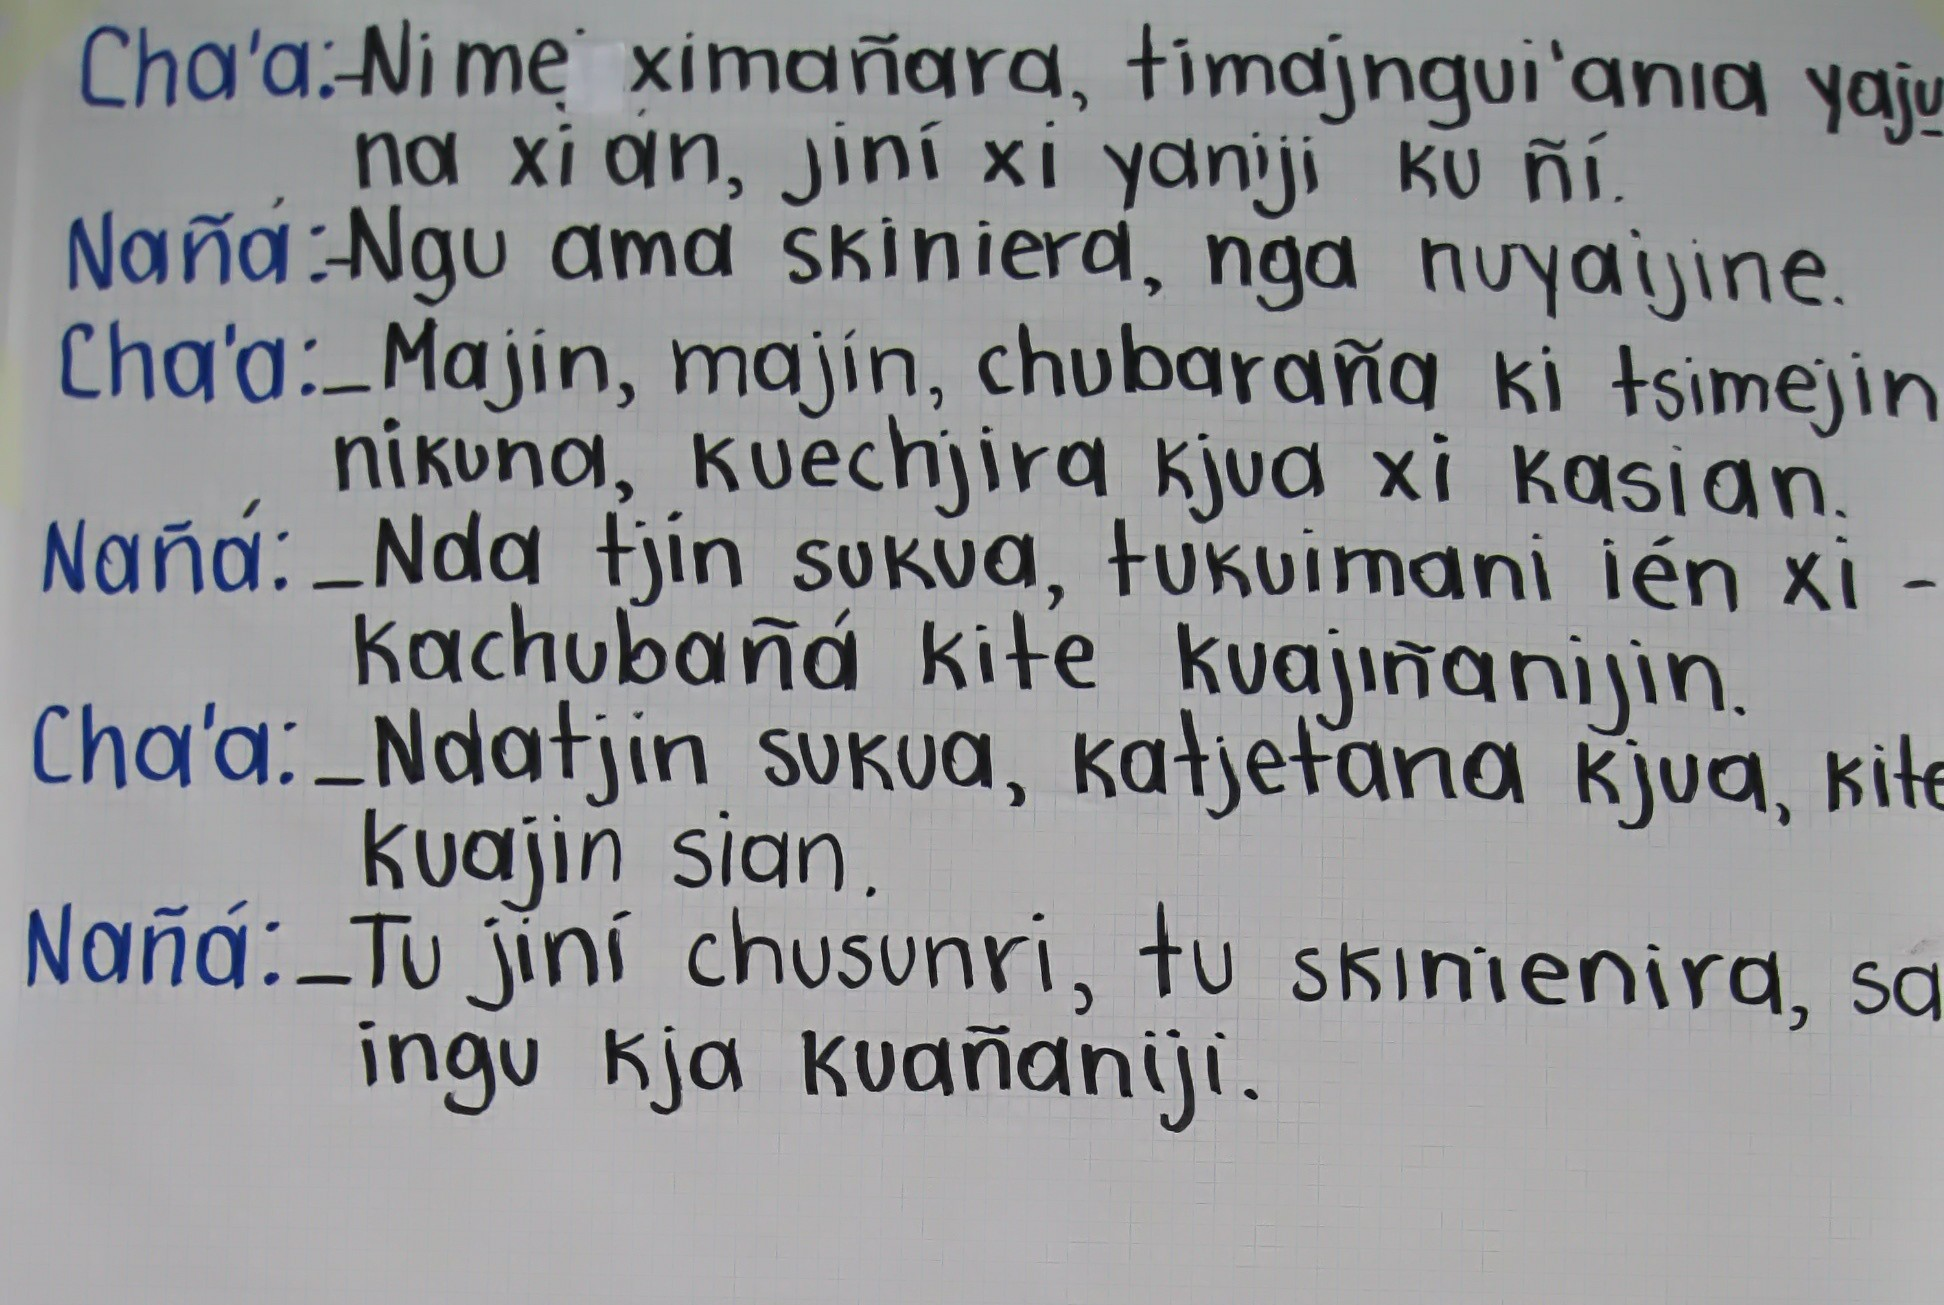 Cha'a:-Ni me ximañara, timajngui'ania yaju
na xi án, jiní xi yaniji ku ñí.
Nañá:-Ngu ama skiniera, nga nuyaijine.
Cha'a:_Majin, majín, chubaraña ki tsimejin
nikuna, kuechjira kjua xi kasian.
Nañá:_Nda tjín sukua, tukuimani ién xi -
kachubañá kite kuajiñanijin.
Cha'a:_Ndatjin sukua, katjetana kjua, kite
kuajin sian.
Nañá:_Tu jiní chusunri, tu skinienira, sa
ingu kja kuañaniji.